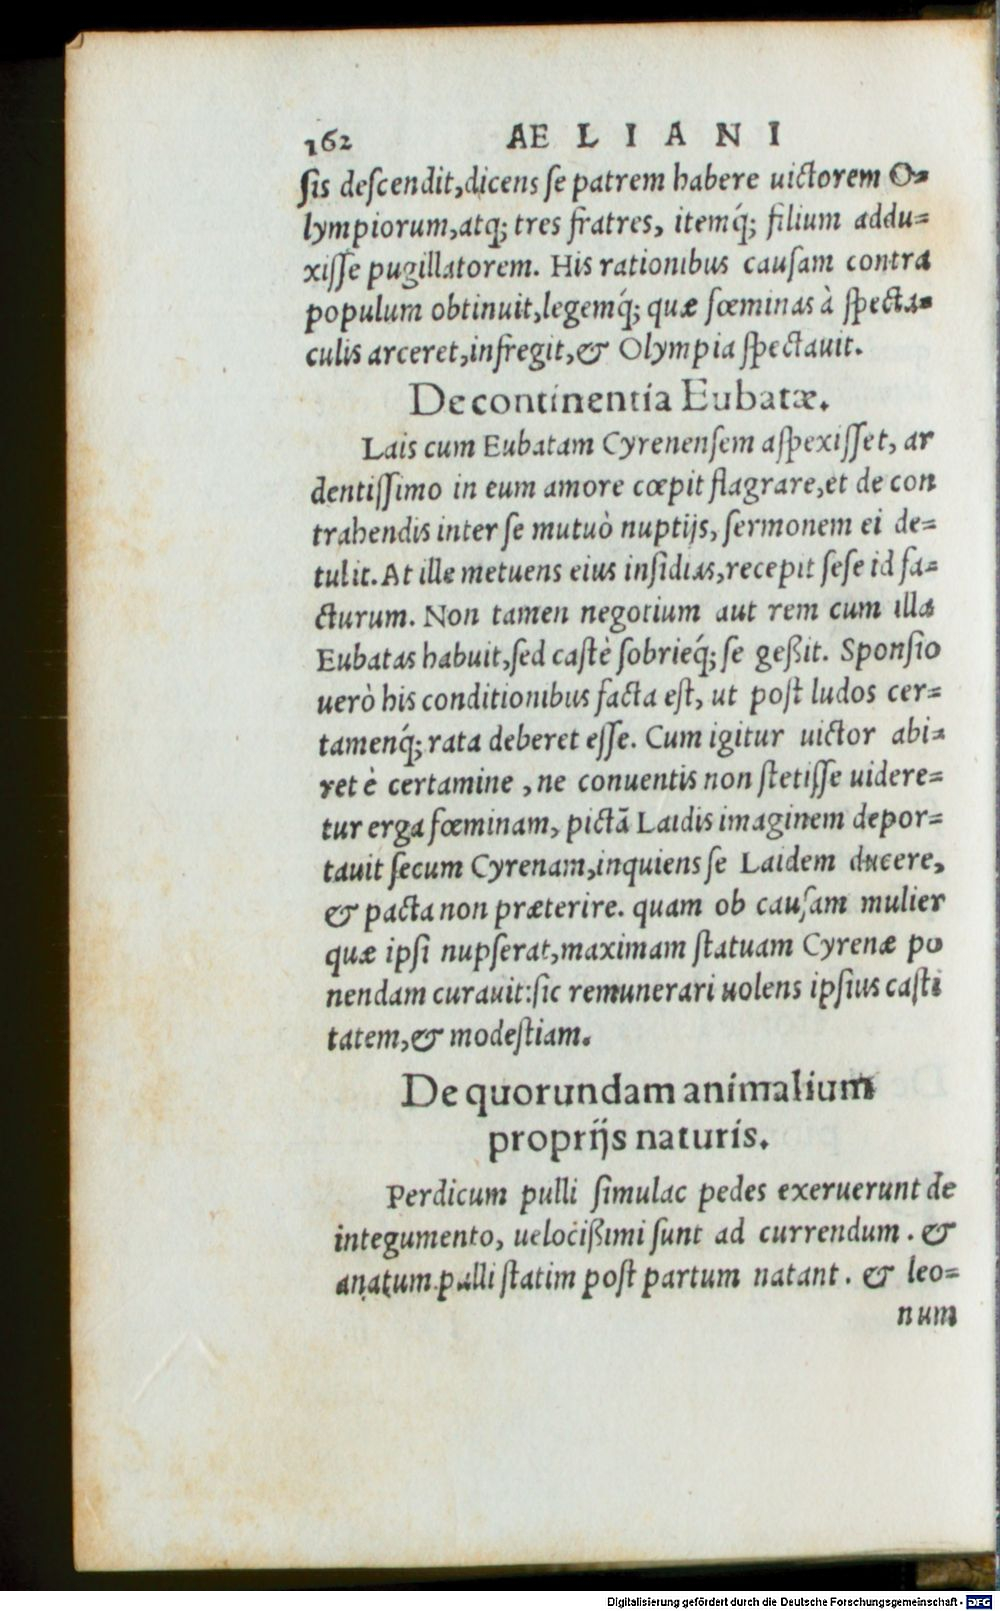 162 AELIANI
sis descendit, dicens se patrem habere uictorem O-
lympiorum, atq; tres fratres, itemq́; filium addu=
xisse pugillatorem. His rationibus causam contra
populum obtinuit, legemq́; quæ fœminas à specta-
culis arceret, infregit, & Olympia spectauit.
De continentia Eubatæ.
Lais cum Eubatam Cyrenensem aspexisset, ar
dentissimo in eum amore cœpit flagrare, et de con
trahendis inter se mutuò nuptijs, sermonem ei de=
tulit. At ille metuens eius insidias, recepit sese id fa-
cturum. Non tamen negotium aut rem cum illa
Eubatas habuit, sed castè sobrieq́; se geßit. Sponsio
uerò his conditionibus facta est, ut post ludos cer=
tamenq́; rata deberet esse. Cum igitur uictor abi-
ret è certamine, ne conuentis non stetisse uidere=
tur erga fœminam, pictã Laidis imaginem depor=
tauit secum Cyrenam, inquiens se Laidem ducere,
& pacta non præterire. quam ob causam mulier
quæ ipsi nupserat, maximam statuam Cyrenæ po
nendam curauit: sic remunerari uolens ipsius casti
tatem, & modestiam.
De quorundam animalium
proprijs naturis.
Perdicum pulli simulac pedes exeruerunt de
integumento, uelocißimi sunt ad currendum. &
anatum pulli statim post partum natant. & leo=
num
Digitalisierung gefördert durch die Deutsche Forschungsgemeinschaft - DFG